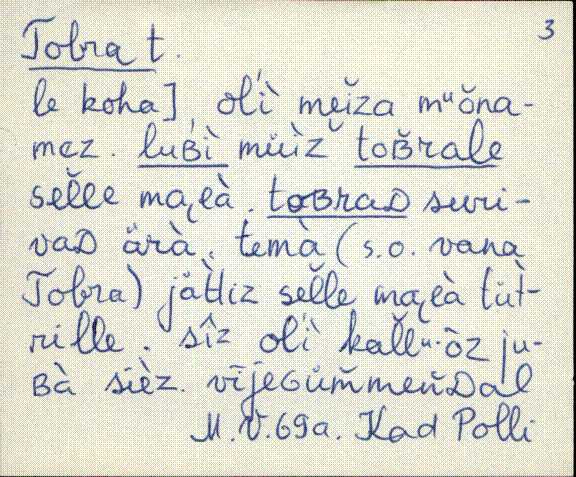 3
Tobra t.
le koha], olˈì mei̮za mᵘŏna-
mez. luʙˈì müìz toʙ̆rale
sĕl̆le maᴉeà. toʙraᴅ suri-
vaᴅ ärà. temà (s.o. vana
Tobra) jät̀tiz sel̆le maᴉeà tüt̀-
rille. sîz olˈì kal̆lᵘ·òz ju-
ʙà sièz. vījeɢüm̆men̆ᴅal
M.V. 69a. Kad Polli